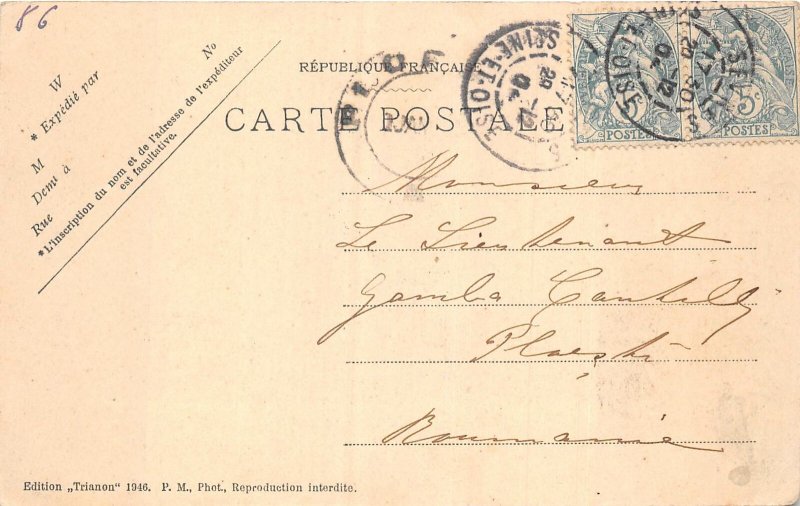 86
RÉPUBLIQUE FRANÇAISE
CARTE POSTALE
Nº
W
* Expédié par
M
Demt à
Rue
*L'inscription du nom et de l'adresse de l'expéditeur
est facultative.
SEINE-ET-OISE
5c
POSTES
POSTES
Monsieur
Le Lieutenant
Gamba
Ploesti
Roumanie
Edition „Trianon" 1946. P. M., Phot., Reproduction interdite.